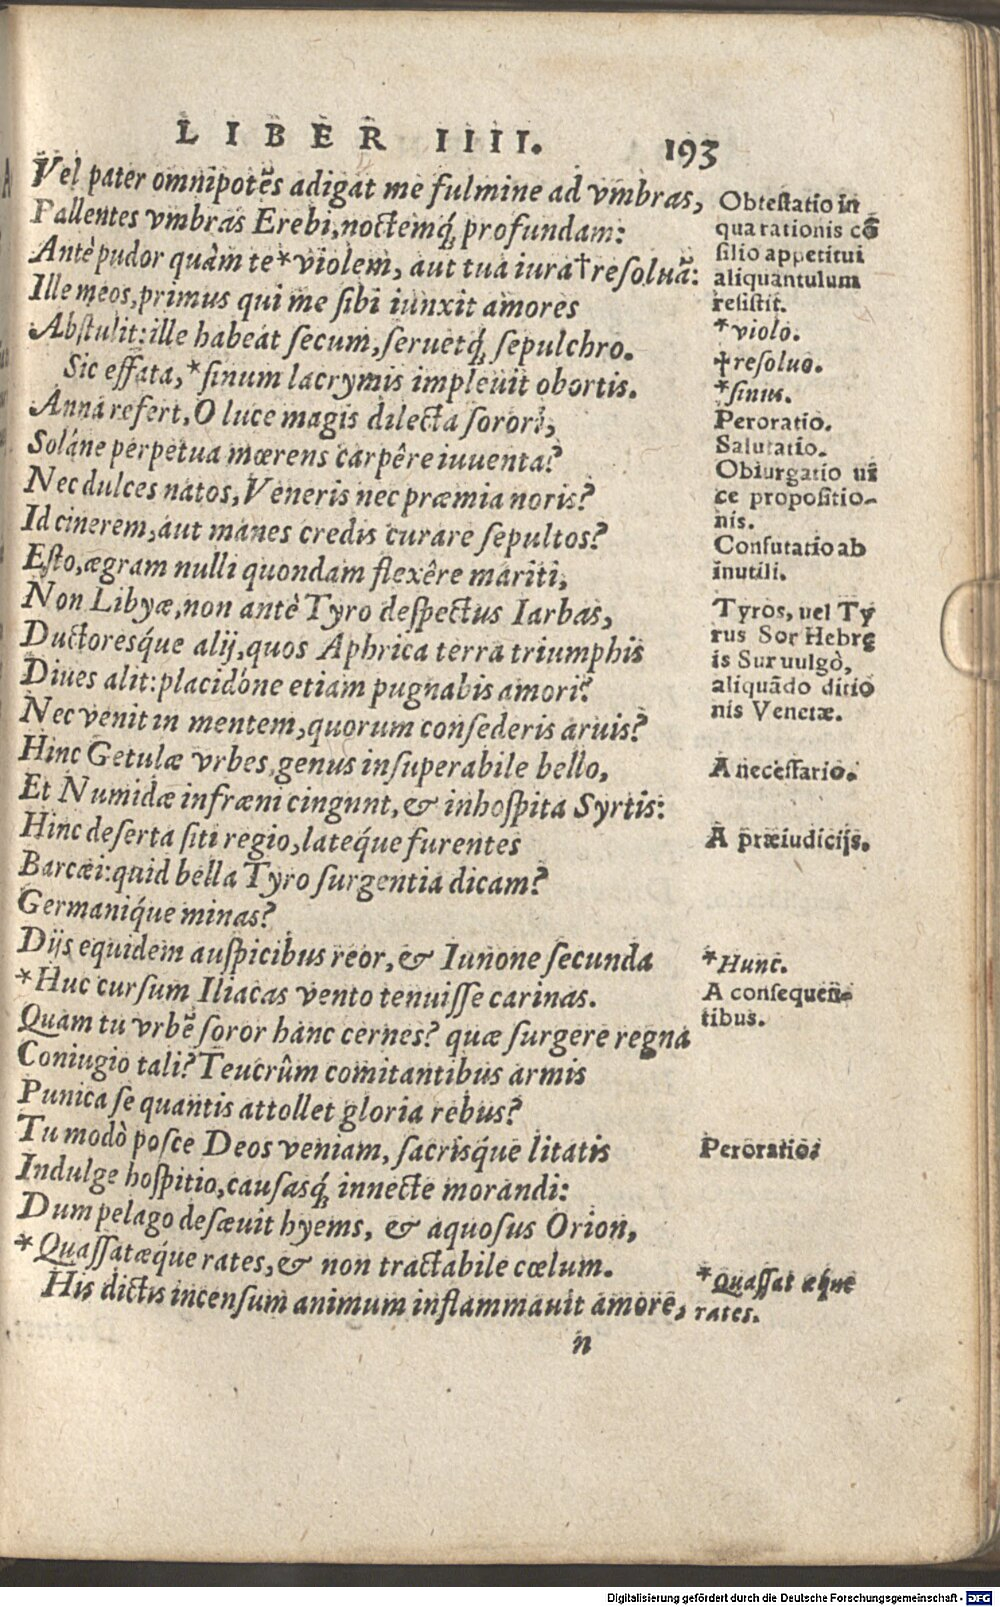 LIBER IIII. 193
Vel pater omnipotẽs adigat me fulmine ad vmbras,
Pallentes vmbras Erebi, noctemq́; profundam:
Antè pudor quàm te *violem, aut tua iura †resoluã:
Ille meos, primus qui me sibi iunxit amores
Abstulit: ille habeat secum, seruetq́; sepulchro.
Sic effata, *sinum lacrymis impleuit obortis.
Anna refert, O luce magis dilecta sorori,
Soláne perpetua mœrens carpêre iuuenta?
Nec dulces natos, Veneris nec præmia noris?
Id cinerem, aut manes credis curare sepultos?
Esto, ægram nulli quondam flexêre mariti,
Non Libyæ, non antè Tyro despectus Iarbas,
Ductoresq́ue alij, quos Aphrica terra triumphis
Diues alit: placidóne etiam pugnabis amori?
Nec venit in mentem, quorum consederis aruis?
Hinc Getulæ vrbes, genus insuperabile bello,
Et Numidæ infræni cingunt, & inhospita Syrtis:
Hinc deserta siti regio, lateq́ue furentes
Barcæi: quid bella Tyro surgentia dicam?
Germaniq́ue minas?
Dijs equidem auspicibus reor, & Iunone secunda
*Huc cursum Iliacas vento tenuisse carinas.
Quam tu vrbẽ soror hanc cernes? quæ surgere regna
Coniugio tali? Teucrûm comitantibus armis
Punica se quantis attollet gloria rebus?
Tu modò posce Deos veniam, sacrisq́ue litatis
Indulge hospitio, causasq́; innecte morandi:
Dum pelago desæuit hyems, & aquosus Orion,
*Quassatæq́ue rates, & non tractabile cœlum.
His dictis incensum animum inflammauit amore,
n
Obtestatio in
qua rationis cõ
silio appetitui
aliquantulum
resistit.
*violo.
†resoluo.
*sinus.
Peroratio.
Salutatio.
Obiurgatio uĩ
ce propositio-
nis.
Confutatio ab
inutili.
Tyros, uel Ty
rus Sor Hebrę
is Sur uulgò,
aliquãdo ditio
nis Venetæ.
A necessario.
A præiudicijs.
*Hunc.
A consequen-
tibus.
Peroratio.
*Quassat æq́ue
rates.
Digitalisierung gefördert durch die Deutsche Forschungsgemeinschaft - DFG